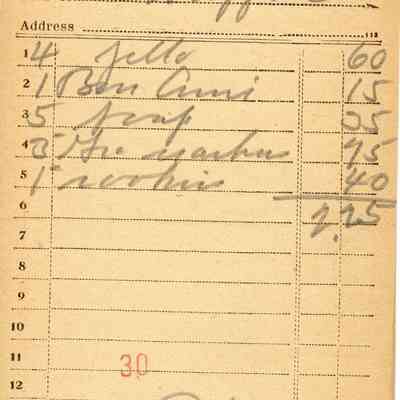 Address
1 4 Jello 60
2 1 Bon Ami 15
3 5 Soap 35
4 3 75
5 1 cookies 40
6 2.25
7
8
9
10
11 30
12